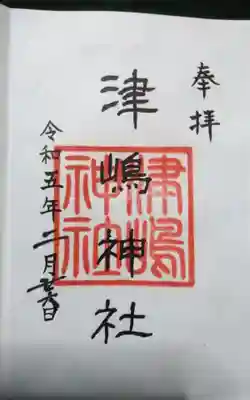 奉拝
津嶋神社
津嶋
神社
令和五年二月